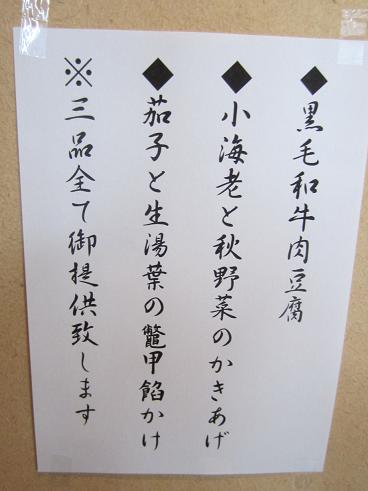 ◆黒毛和牛肉豆腐
◆小海老と秋野菜のかきあげ
◆茄子と生湯葉の鼈甲餡かけ
※三品全て御提供致します